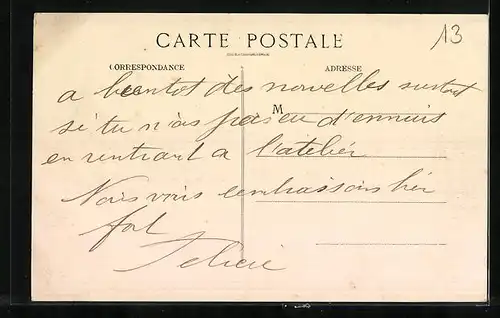 CARTE POSTALE
13
CORRESPONDANCE
ADRESSE
M
a bientot des nouvelles surtout
si tu n'as pas eu d'ennuis
en rentrant a l'atelier
Nous vous embrassons bien
fort
Felicie